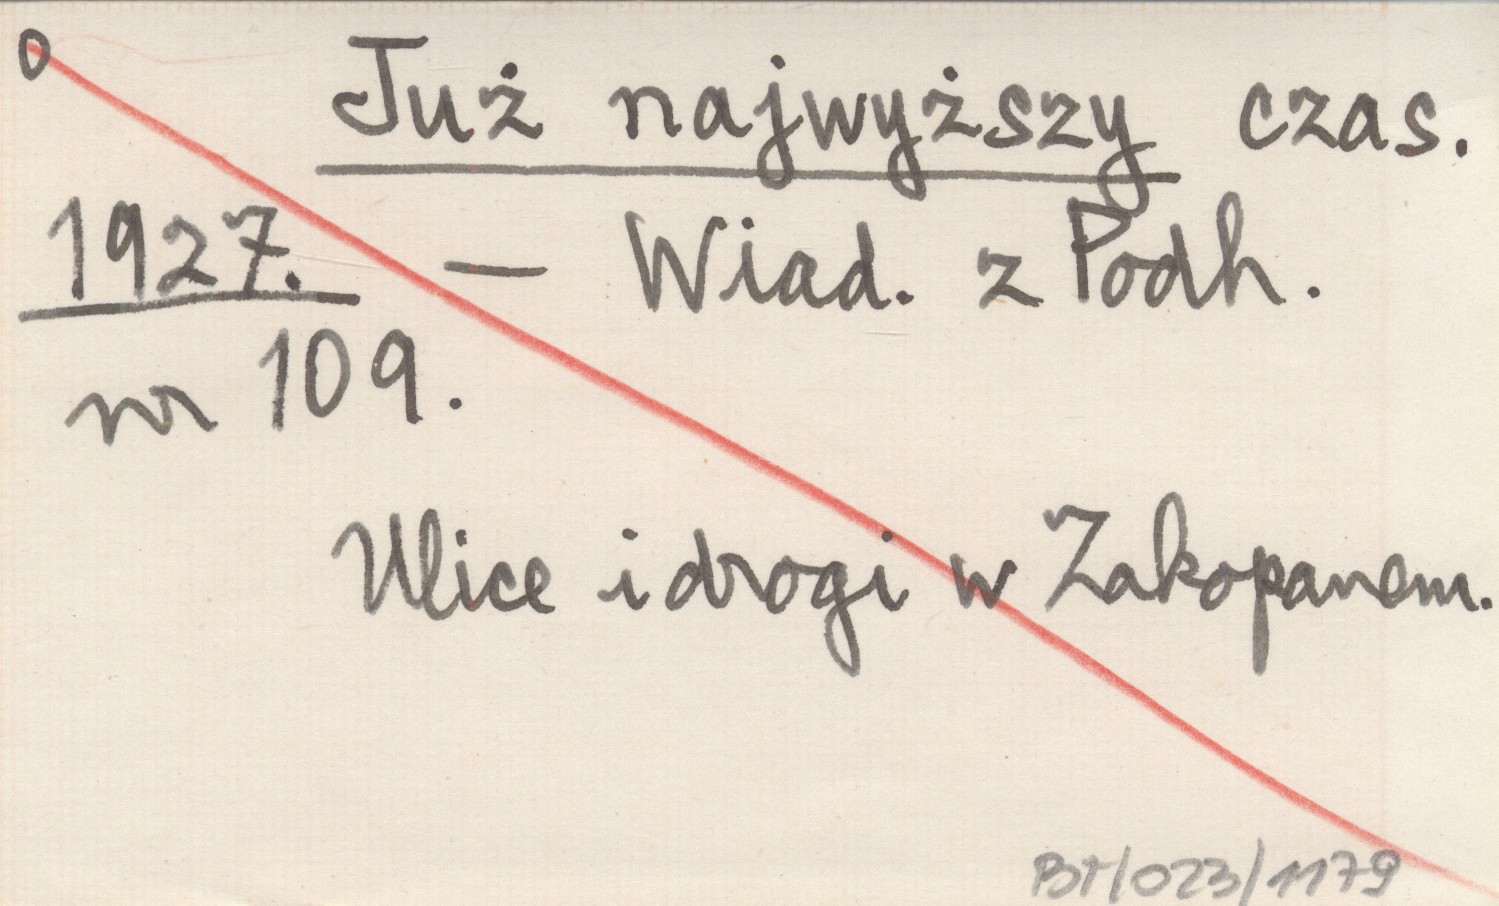 0
Już najwyższy czas.
1927. — Wiad. z Podh.
nr 109.
Ulice i drogi w Zakopanem.
BT/023/1179